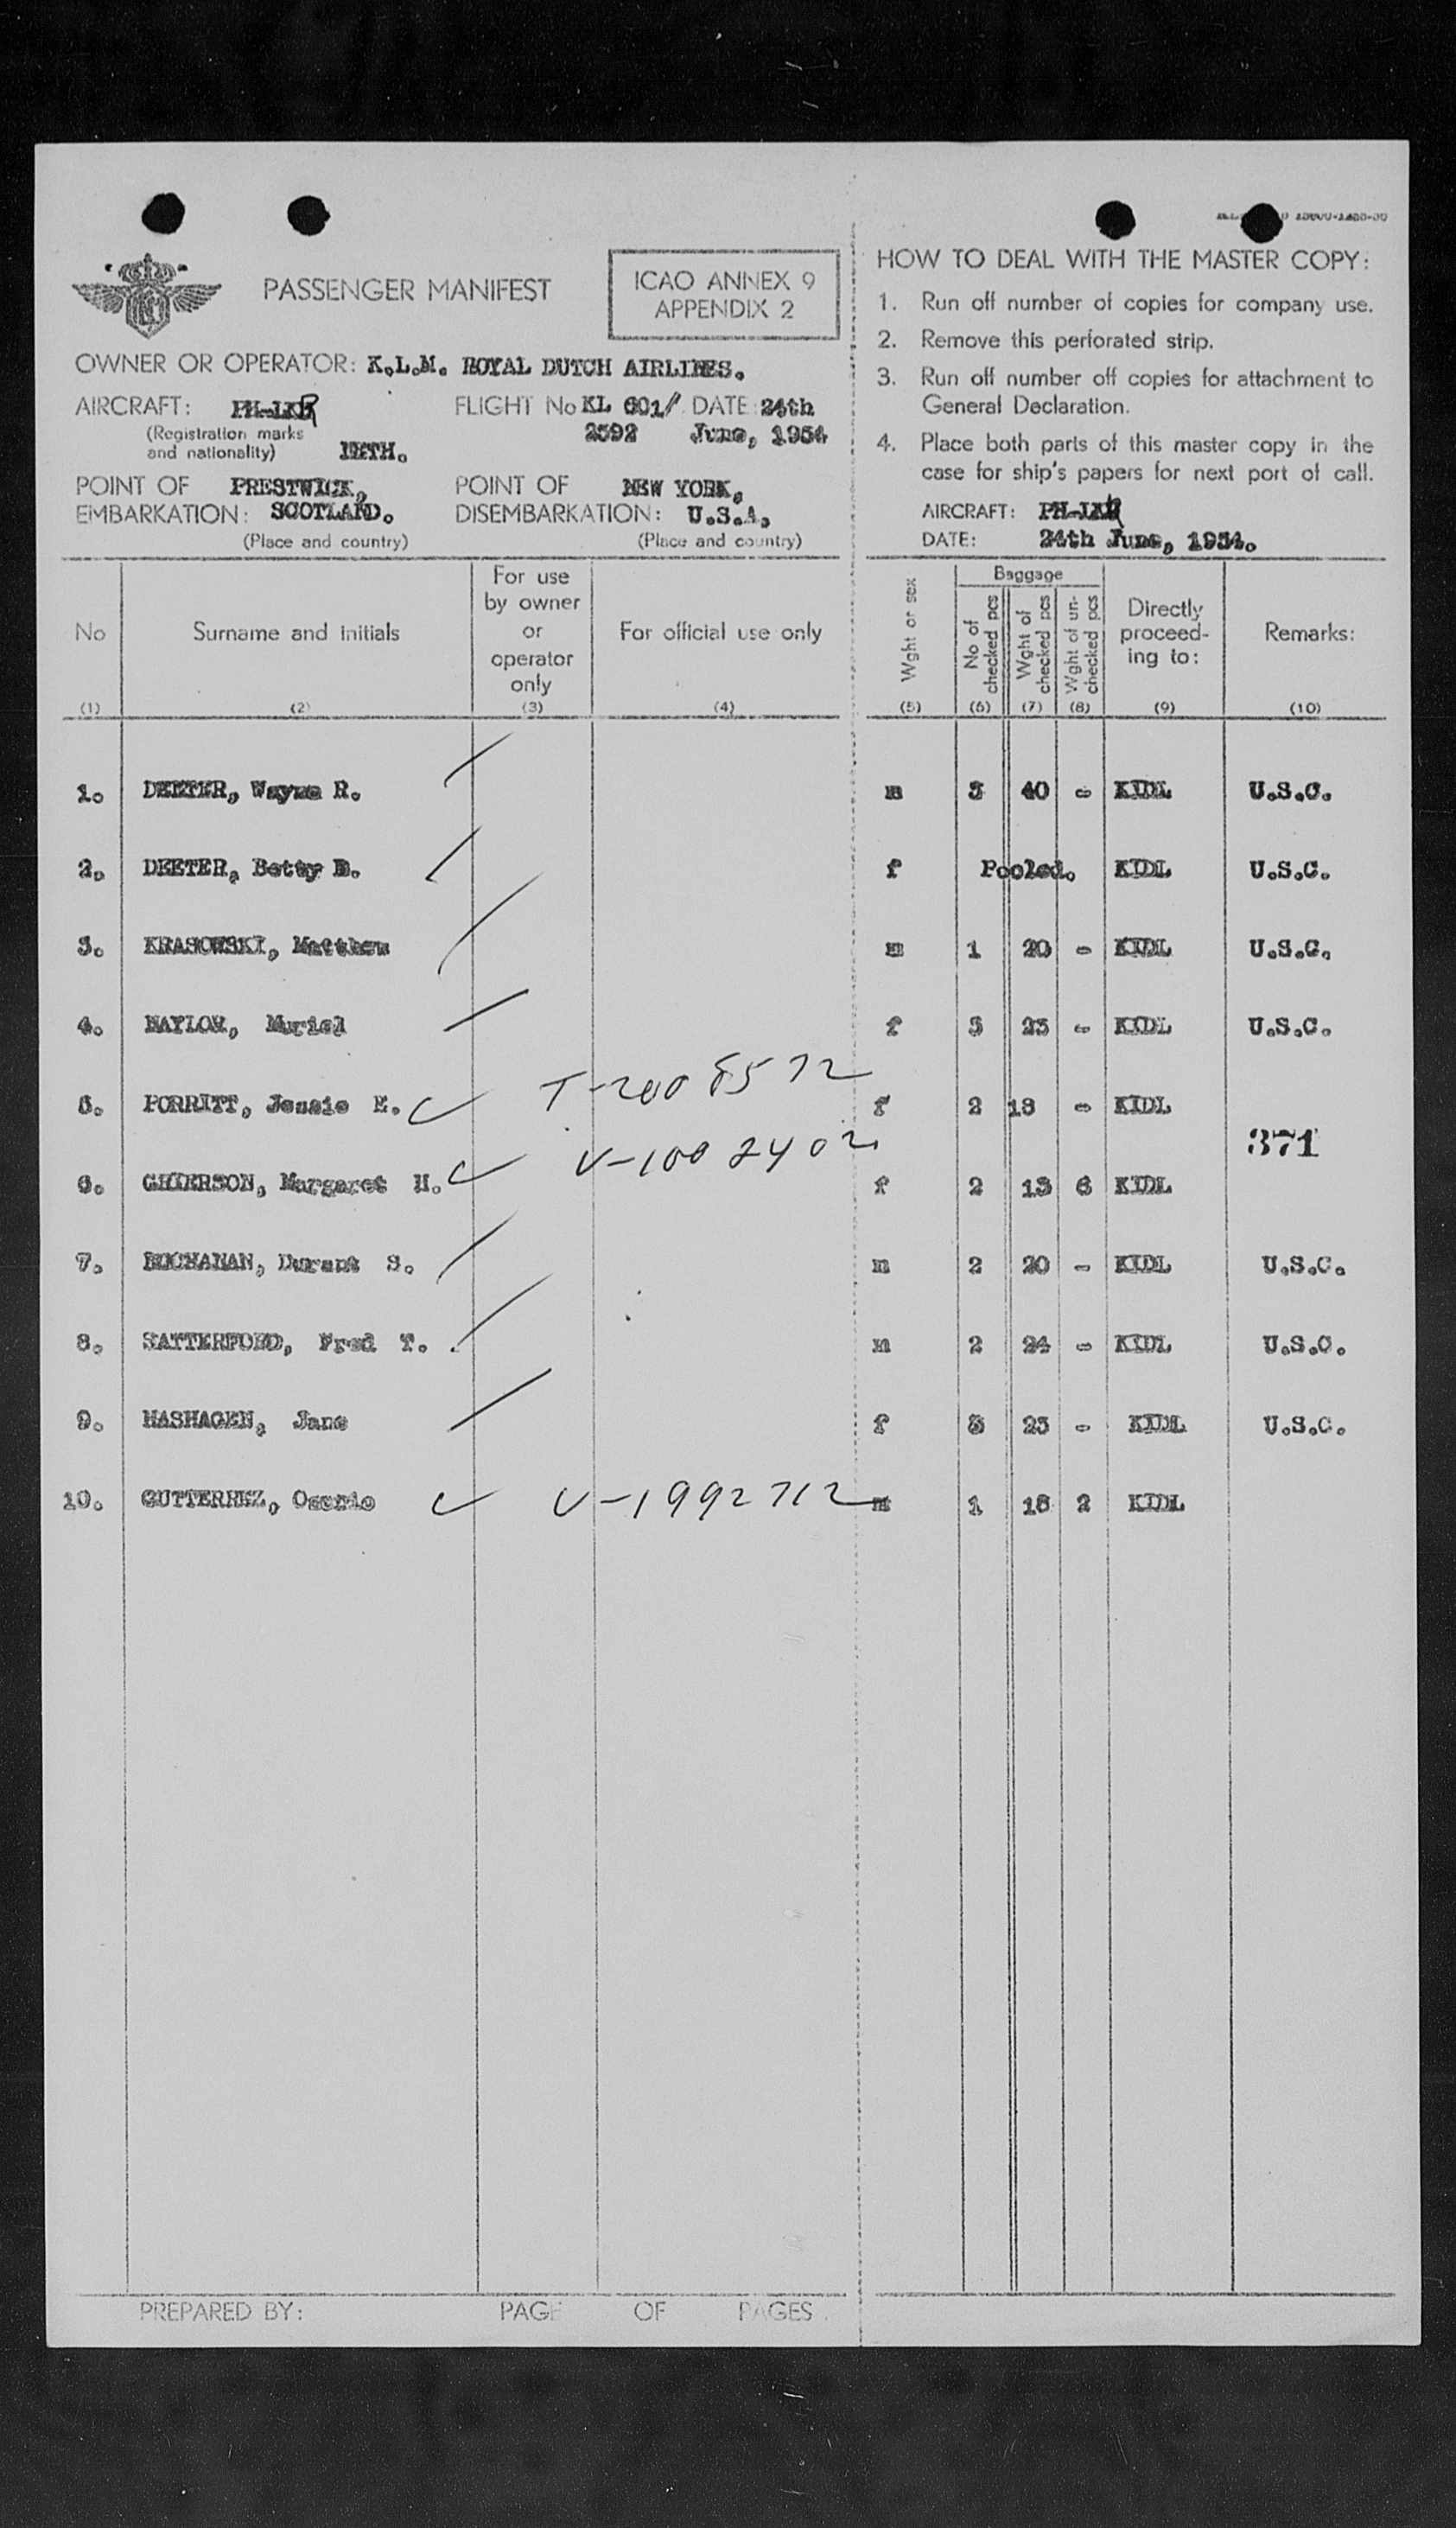 PASSENGER MANIFEST
ICAO ANNEX 9
APPENDIX 2
OWNER OR OPERATOR: K.L.M. ROYAL DUTCH AIRLINES.
AIRCRAFT: FLIGHT No KL 601/ DATE: 24th
(Registration marks and nationality) NETH. 2592 June, 1954
POINT OF EMBARKATION: PRESTWICK, SCOTLAND.
(Place and country)
POINT OF DISEMBARKATION: NEW YORK, U.S.A.
(Place and country)
HOW TO DEAL WITH THE MASTER COPY:
1. Run off number of copies for company use.
2. Remove this perforated strip.
3. Run off number off copies for attachment to
General Declaration.
4. Place both parts of this master copy in the
case for ship's papers for next port of call.
AIRCRAFT:
DATE: 24th June, 1954.
No
(1)
Surname and initials
(2)
For use
by owner
or
operator
only
(3)
For official use only
(4)
Wght or sex
(5)
Baggage
No of checked pcs
(6)
Wght of checked pcs
(7)
Wght of un-checked pcs
(8)
Directly
proceed-
ing to:
(9)
Remarks:
(10)
1. DEETER, Wayne R. m 3 40 - KIDL U.S.C.
2. DEETER, Betty D. f Pooled. KIDL U.S.C.
3. KRASOWSKI, Matthew m 1 20 - KIDL U.S.C.
4. NAYLOR, Muriel f 3 23 - KIDL U.S.C.
5. PORRITT, Jessie E. T-2008572 f 2 18 - KIDL
371
6. Margaret H. V-1002402 f 2 13 6 KIDL
7. BUCHANAN, Durant S. m 2 20 - KIDL U.S.C.
8. SATTERFORD, Fred T. m 2 24 - KIDL U.S.C.
9. HASHAGEN, Jane f 3 23 - KIDL U.S.C.
10. GUTTERREZ, V-1992712 m 1 18 2 KIDL
PREPARED BY: PAGE OF PAGES